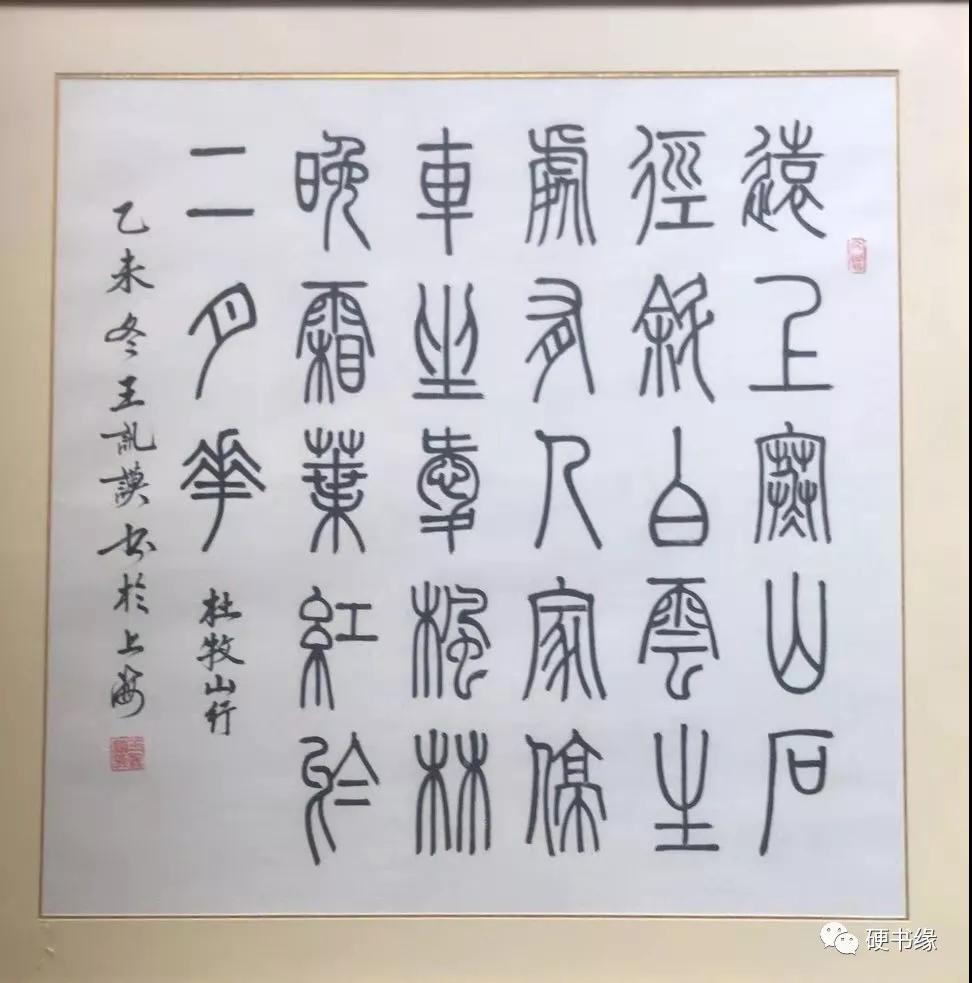 遠上寒山石
徑斜白雲生
處有人家停
車坐愛楓林
晚霜葉紅於
二月華
杜牧山行
乙未冬王訊謨书於上海
硬书缘